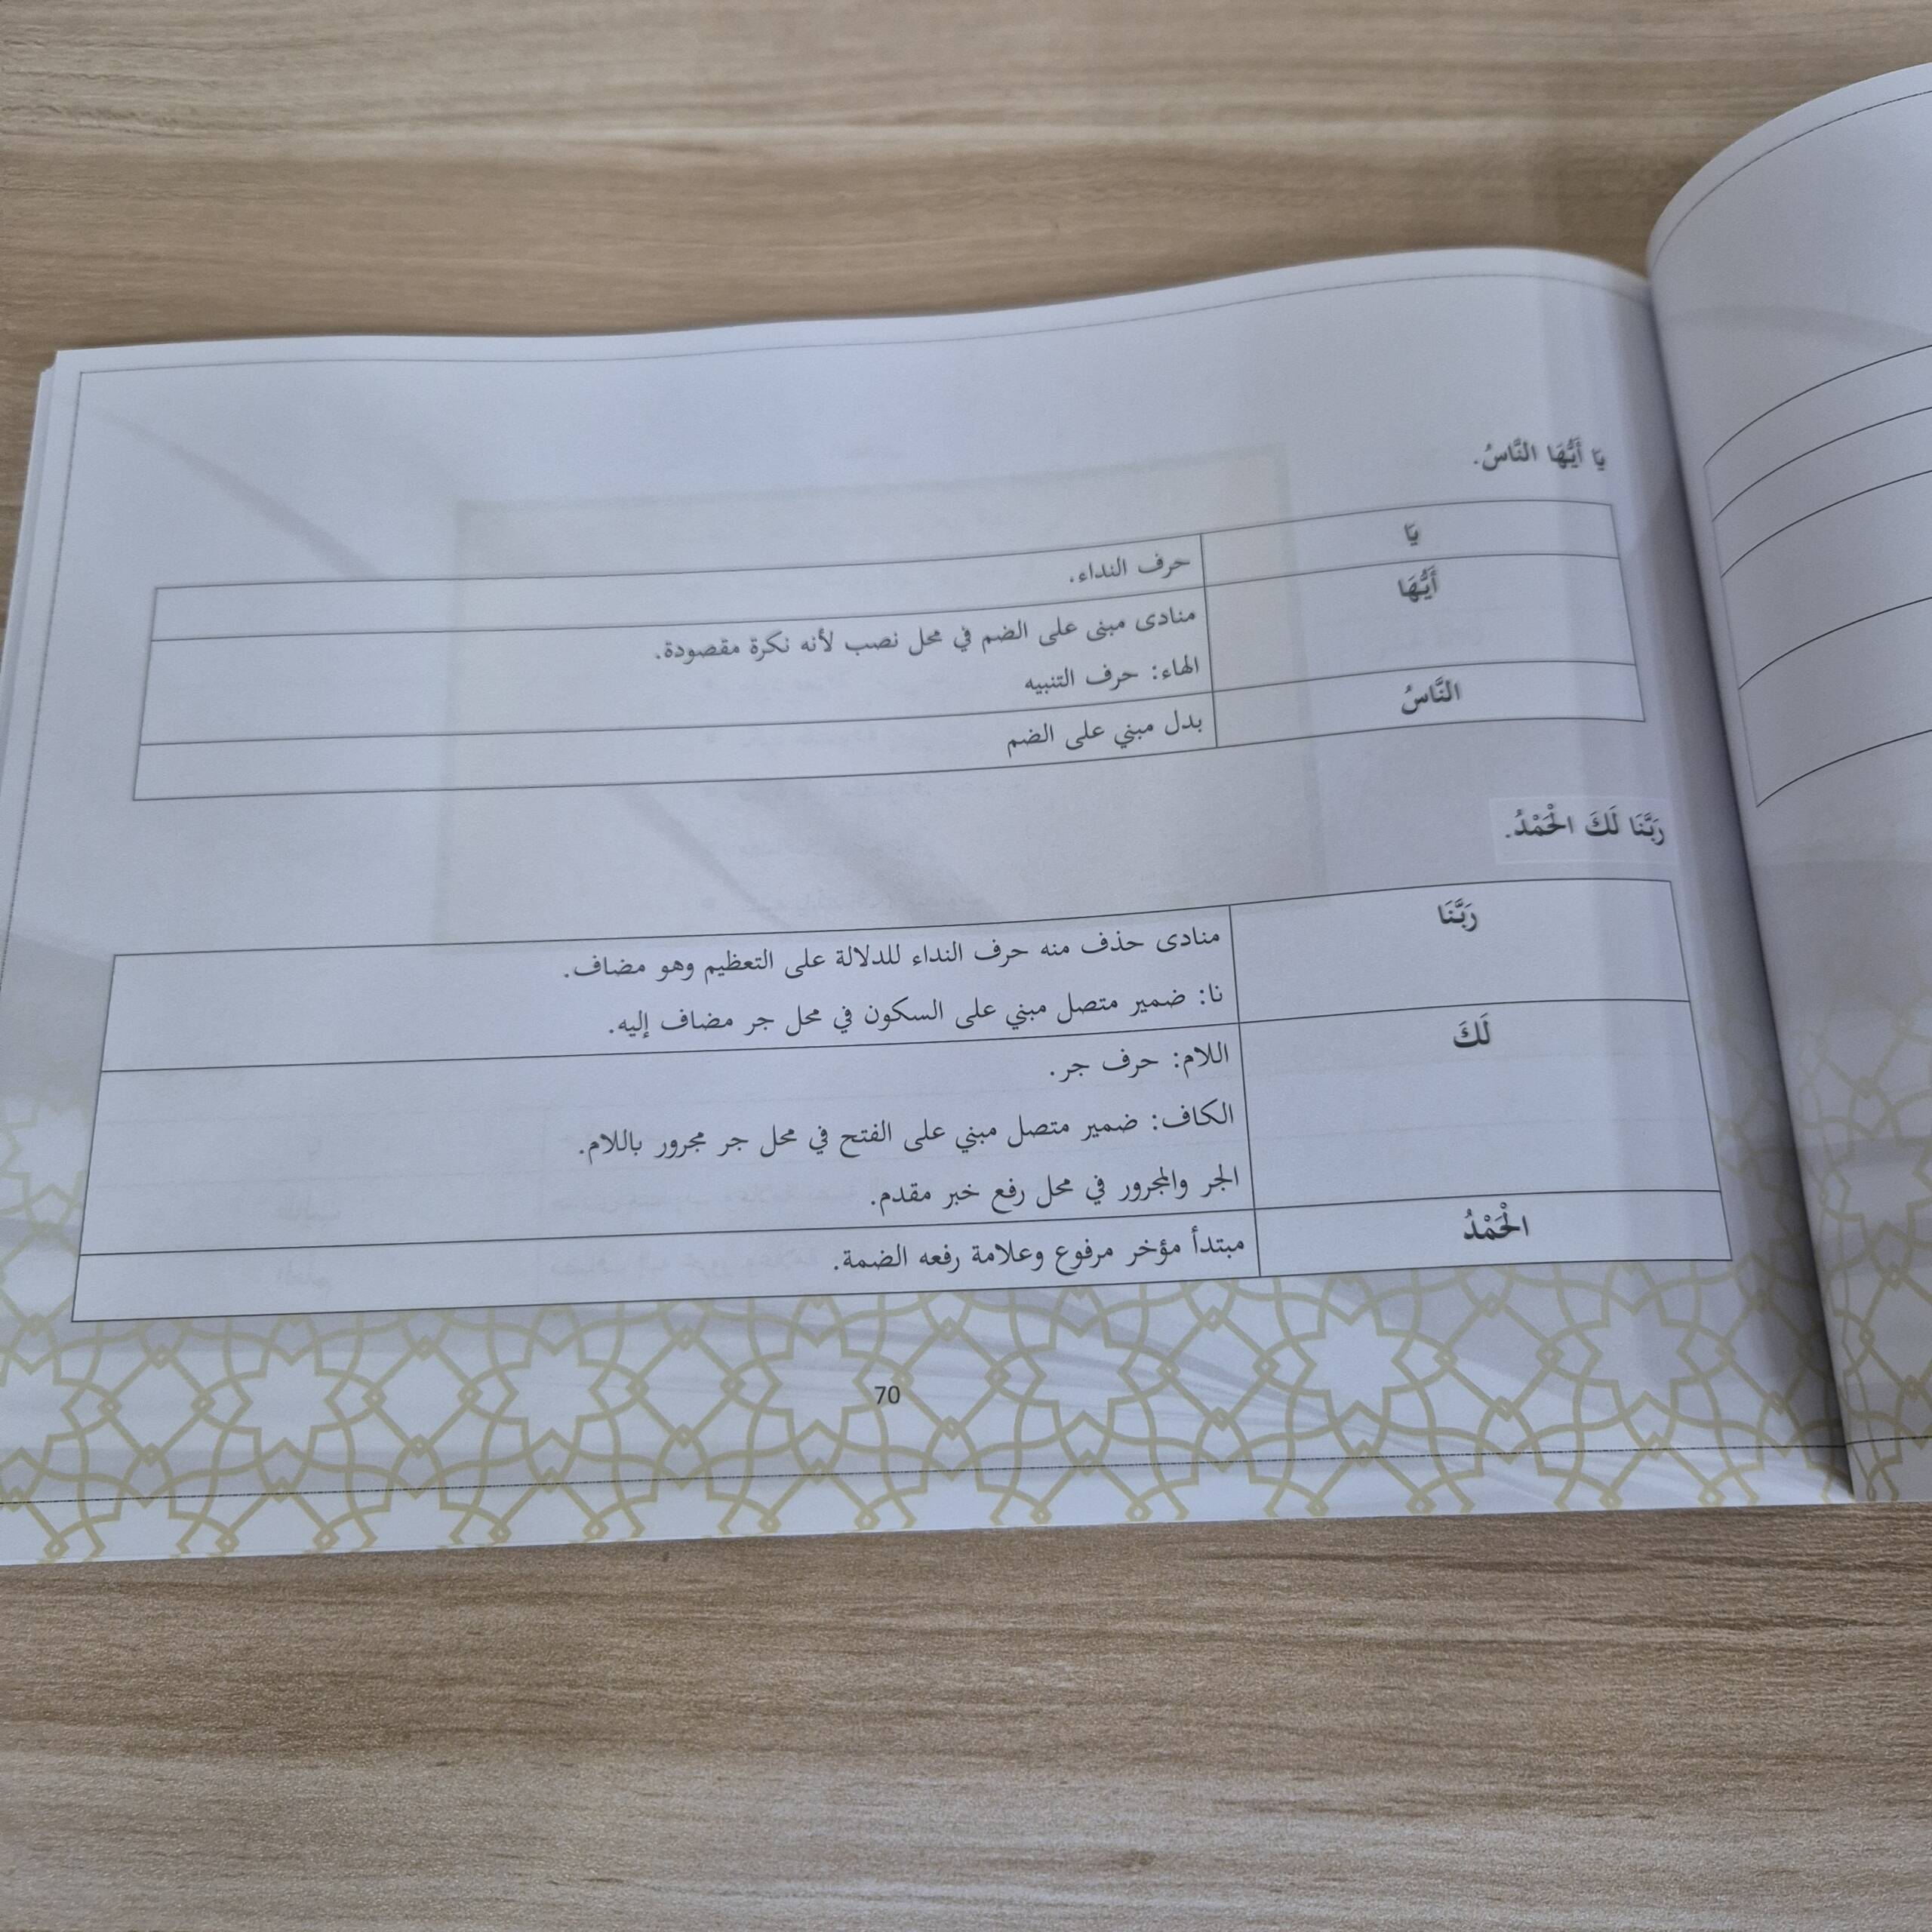 يَا أَيُّهَا النَّاسُ.
يَا
حرف النداء.
أَيُّهَا
منادى مبنى على الضم في محل نصب لأنه نكرة مقصودة.
الهاء: حرف التنبيه
النَّاسُ
بدل مبني على الضم
رَبَّنَا لَكَ الْحَمْدُ.
رَبَّنَا
منادى حذف منه حرف النداء للدلالة على التعظيم وهو مضاف.
نا: ضمير متصل مبني على السكون في محل جر مضاف إليه.
لَكَ
اللام: حرف جر.
الكاف: ضمير متصل مبني على الفتح في محل جر مجرور باللام.
الجر والمجرور في محل رفع خبر مقدم.
الْحَمْدُ
مبتدأ مؤخر مرفوع وعلامة رفعه الضمة.
70